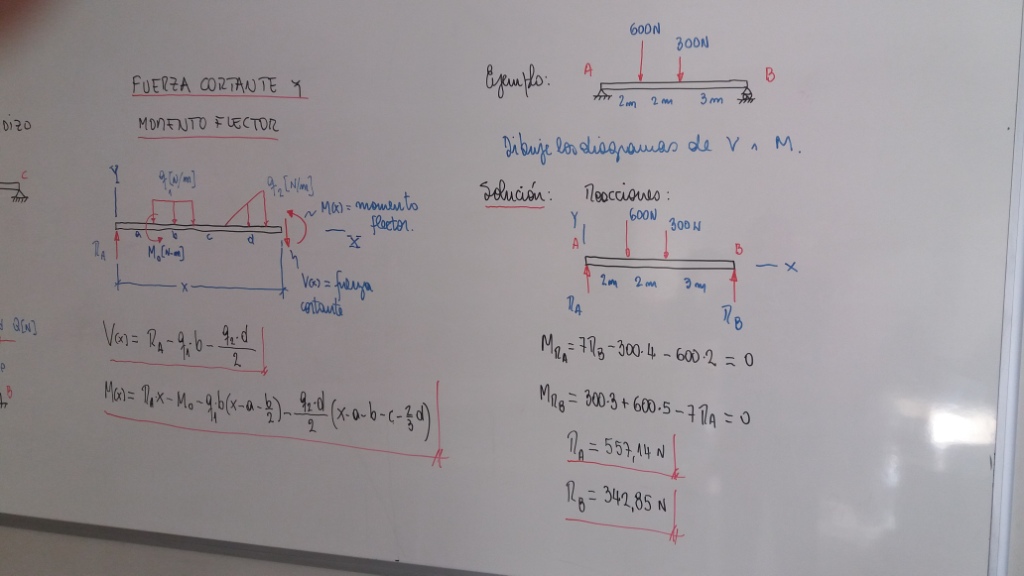 DIZO
C
d Q[N]
B
FUERZA CORTANTE Y
MOMENTO FLECTOR
Y
q₁[N/m]
q₂[N/m]
M(x) = momento
flector.
X
a b c d
R_A
M₀[N-m]
x
V(x) = fuerza
cortante
V(x) = R_A - q₁·b - q₂·d/2
M(x) = R_A x - M₀ - q₁·b(x-a-b/2) - q₂·d/2 (x-a-b-c-2/3 d)
Ejemplo:
600N
300N
A
B
2m 2m 3m
Dibuje los diagramas de V ∧ M.
Solución: Reacciones:
600N
300N
Y
A
B
x
2m 2m 3m
R_A
R_B
M_R_A = 7R_B - 300·4 - 600·2 = 0
M_R_B = 300·3 + 600·5 - 7R_A = 0
R_A = 557,14 N
R_B = 342,85 N